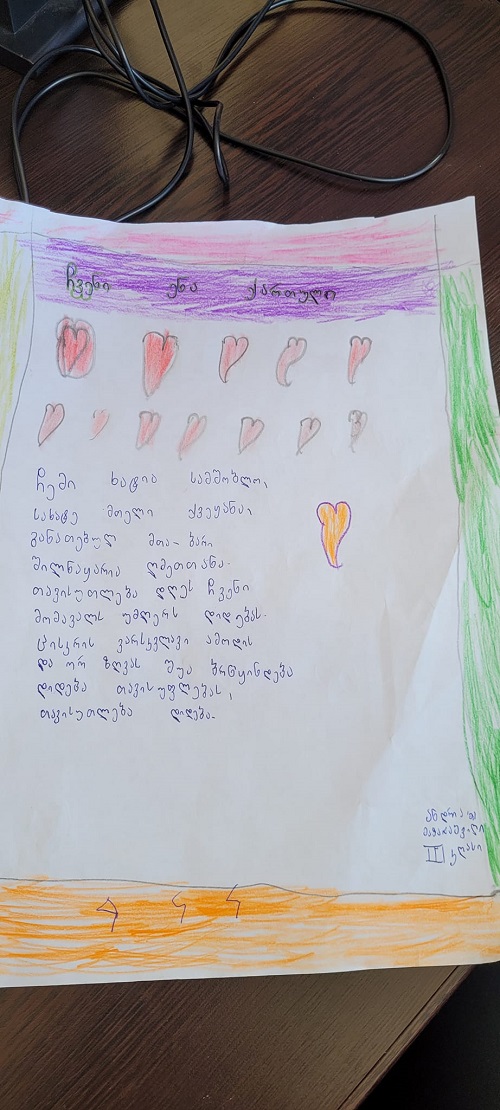 ჩვენი ენა ქართული
ჩემი ხატია სამშობლო,
სახატე მთელი ქვეყანაი
განათებულ მთა-ბარი
წილნაყარია ღმეთთანა.
თავისუთლება დღეს ჩვენი
მომავალს უმღერს დიდებას.
ცისკრის ვარსკვლავი ამოდის
და ორ ზღვას შუა ბრწყინდება
დიდება თავისუფლებას,
თავისუთლება დიდება.
ანდრია
II კლასი